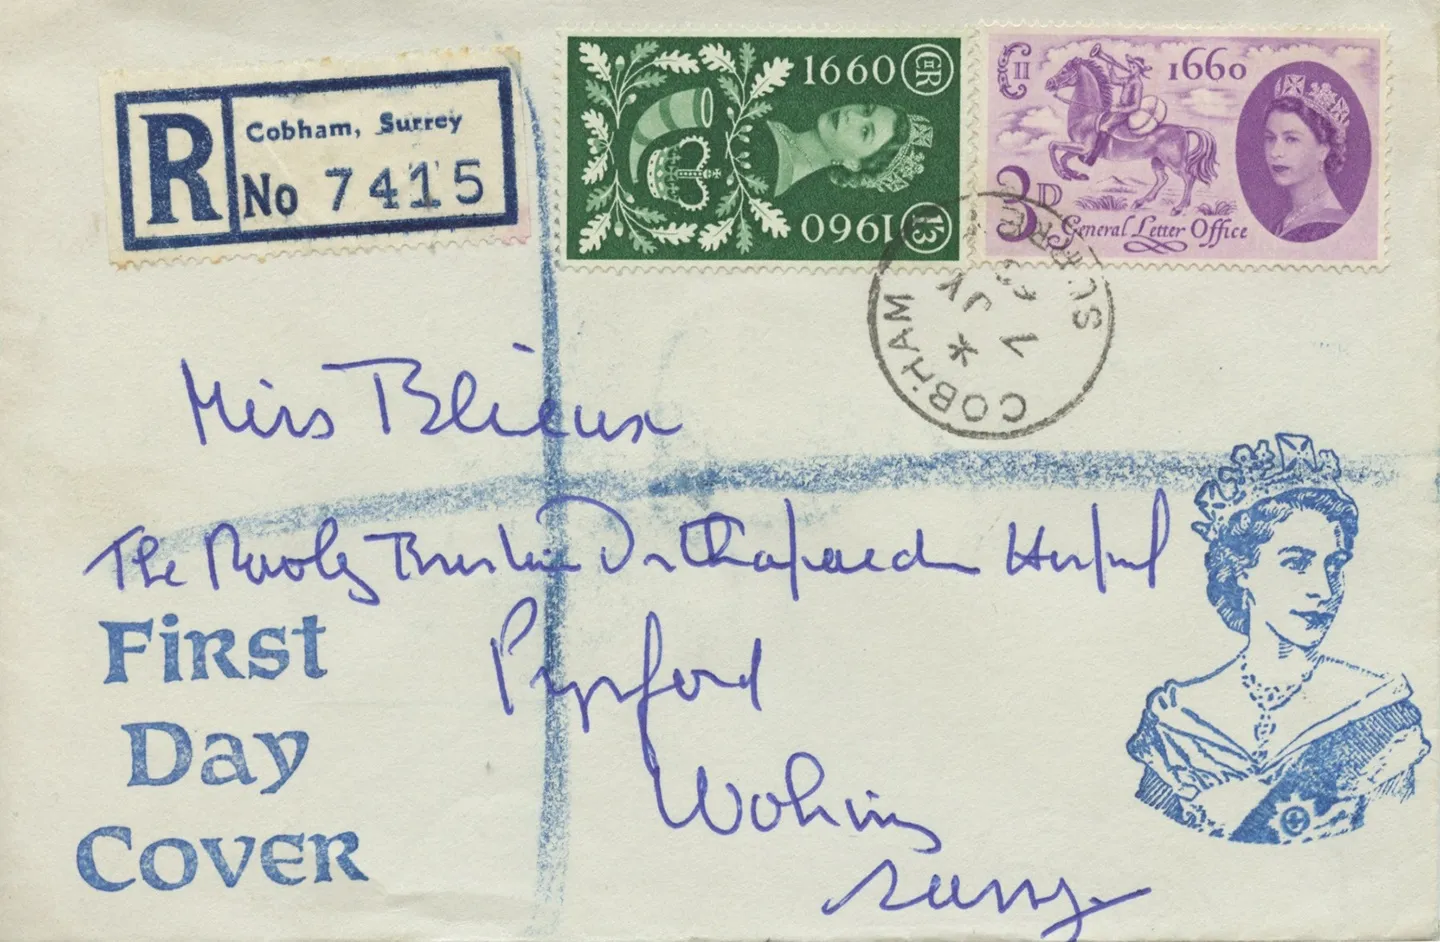 R
Cobham, Surrey
No 7415
1660
E II R
1960
1'3
E II R
1660
3D
General Letter Office
COBHAM SURREY
7 JY
60
Miss
The Rowley Bristow Orthopaedic Hospital
Pyrford
Woking
Surrey
First
Day
Cover